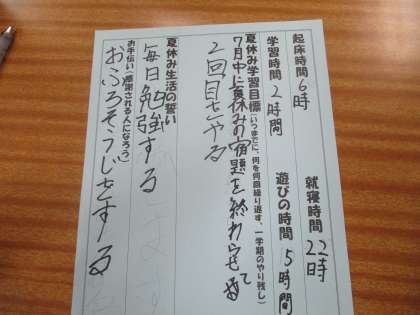 起床時間 6時
就寝時間 22時
学習時間 2時間
遊びの時間 5時間
夏休み学習目標(いつまでに、何を何回繰り返す、一学期のやり残し)
7月中に夏休みの宿題を終わらせて
2回目をやる
夏休み生活の誓い
毎日勉強する
お手伝い(感謝される人になろう)
おふろそうじをする